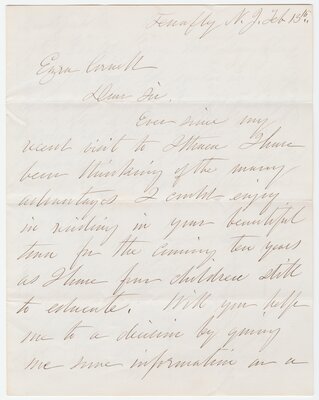 Tenafly N. J. Feb 15th.
Ezra Cornell
Dear Sir,
Ever since my
recent visit to Ithaca I have
been thinking of the many
advantages I could enjoy
in residing in your beautiful
town for the coming ten years
as I have four children still
to educate. Will you help
me to a decision by giving
me some information on a